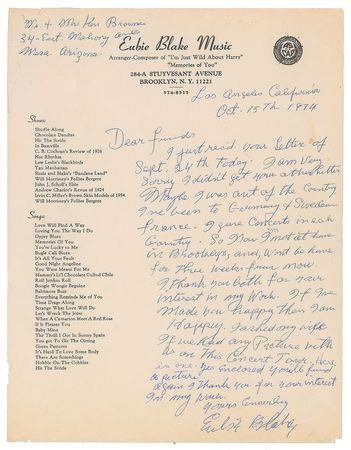 Mr. & Mrs Ken Browne
34-East. Mahony ave
Mesa. Arizona.
Eubie Blake Music
Arranger-Composer of "I'm Just Wild About Harry"
"Memories of You"
284-A STUYVESANT AVENUE
BROOKLYN, N. Y. 11221
574-8535
Los Angeles California
Oct. 15th 1974
Shows:
Shuffle Along
Chocolate Dandies
Hit The Stride
In Bamville
C. B. Cochran's Review of 1926
Hot Rhythm
Lew Leslie's Blackbirds
Tan Manhattan
Souls and Blake's "Bandana Land"
Will Morrissey's Follies Bergere
John J. Scholl's Elsie
Andrew Charlot's Revue of 1924
Irvin C. Miller's Brown Skin Models of 1954
Will Morrissey's Follies Bergere
Songs:
Love Will Find A Way
Loving You The Way I Do
Gypsy Blues
Memories Of You
You're Lucky to Me
Bugle Call Blues
It's All Your Fault
Good Night Angeline
You Were Meant For Me
Mammy's Li'l Chocolate Cullud Chile
Roll Jordan Roll
Boogie Woogie Beguine
Baltimore Buzz
Everything Reminds Me of You
Time Drags Along
Strange What Love Will Do
Let's Wreck The Joint
When A Carnation Meets A Red Rose
If It Pleases You
Baby Mine
The Thrill I Got In Sunny Spain
You got To Git The Gitting
Green Pastures
It's Hard To Love Some Body
There Are Somethings
Hobble On The Cobbles
Hit The Stride
Dear friends
I just rec'd your letter of
Sept. 24th today. I am Very
Sorry I didn't get your other letter
Maybe I was out of the Country
I've been to Germany & Sweden
France. I gave Concerts in each
Country. So Now I'm not at home
in Brooklyn, and, won't be home
for Three weeks from now.
I thank you both for your
interest in my Work. If I've
Made you happy then I am
Happy. I asked my wife
if we had any Picture with
us on this Concert Tour. Here
is one. So enclosed you'll find
a picture.
Again I thank you for your interest
in my Work.
Yours Sincerely
Eubie Blake